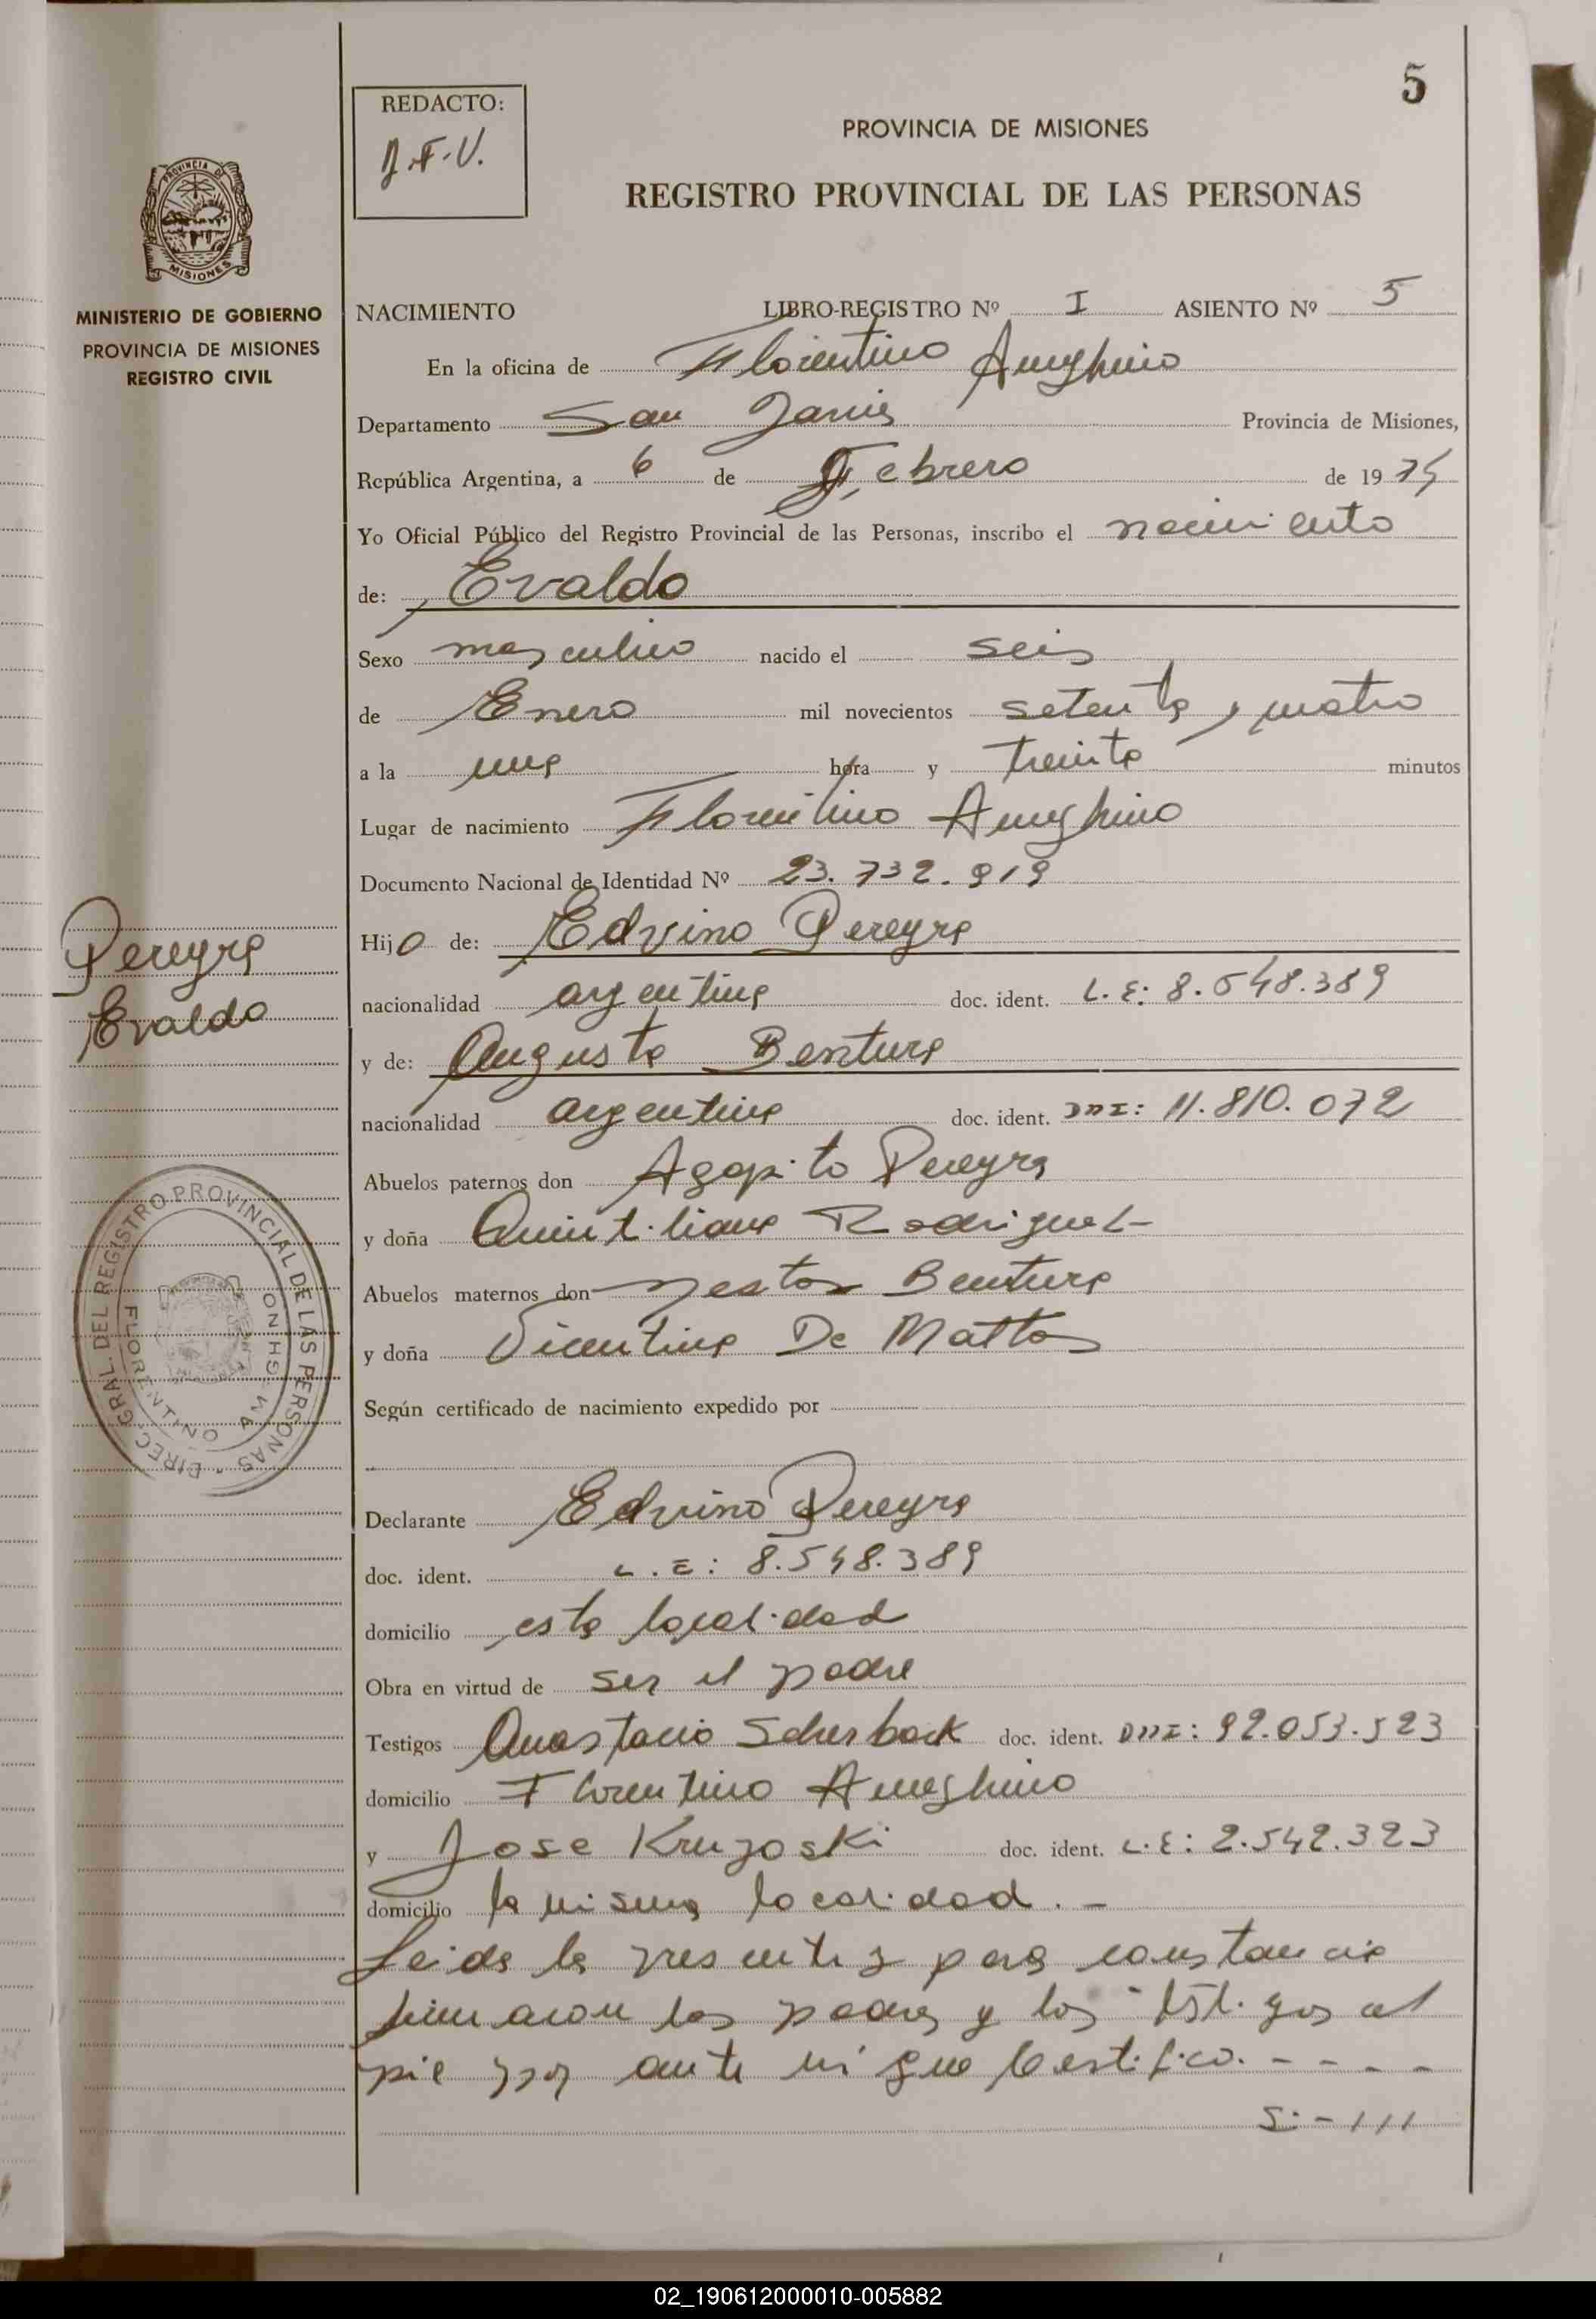 5
REDACTO:
J.F.V.
PROVINCIA DE MISIONES
REGISTRO PROVINCIAL DE LAS PERSONAS
PROVINCIA DE
MISIONES
MINISTERIO DE GOBIERNO
PROVINCIA DE MISIONES
REGISTRO CIVIL
NACIMIENTO LIBRO-REGISTRO Nº I ASIENTO Nº 5
En la oficina de Florentino Ameghino
Departamento San Javier Provincia de Misiones,
República Argentina, a 6 de Febrero de 19
Yo Oficial Público del Registro Provincial de las Personas, inscribo el nacimiento
de: Evaldo
Sexo masculino nacido el seis
de Enero mil novecientos setenta y cuatro
a la una hora y treinta minutos
Lugar de nacimiento Florentino Ameghino
Documento Nacional de Identidad Nº 23.732.919
Hijo de: Edvino Pereyra
nacionalidad argentina doc. ident. L.E: 8.548.389
y de: Augusta Bentura
nacionalidad argentina doc. ident. DNI: 11.810.072
Abuelos paternos don Agapito Pereyra
y doña Quintiliana Rodriguez
Abuelos maternos don Nestor Bentura
y doña Vicentina De Mattos
Según certificado de nacimiento expedido por
Declarante Edvino Pereyra
doc. ident. L.E: 8.548.389
domicilio esta localidad
Obra en virtud de ser el padre
Testigos Anastacio Scherback doc. ident. DNI: 92.053.523
domicilio Florentino Ameghino
y Jose Kruzoski doc. ident. L.E: 2.542.323
domicilio la misma localidad.-
Leida la presente y para constancia
firmaron los padres y los testigos al
pie por ante mi que Certifico. - - - -
S:-///
Pereyra
Evaldo
DIREC. GRAL. DEL REGISTRO PROVINCIAL DE LAS PERSONAS
FLORENTINO AMEGHINO
02_190612000010-005882